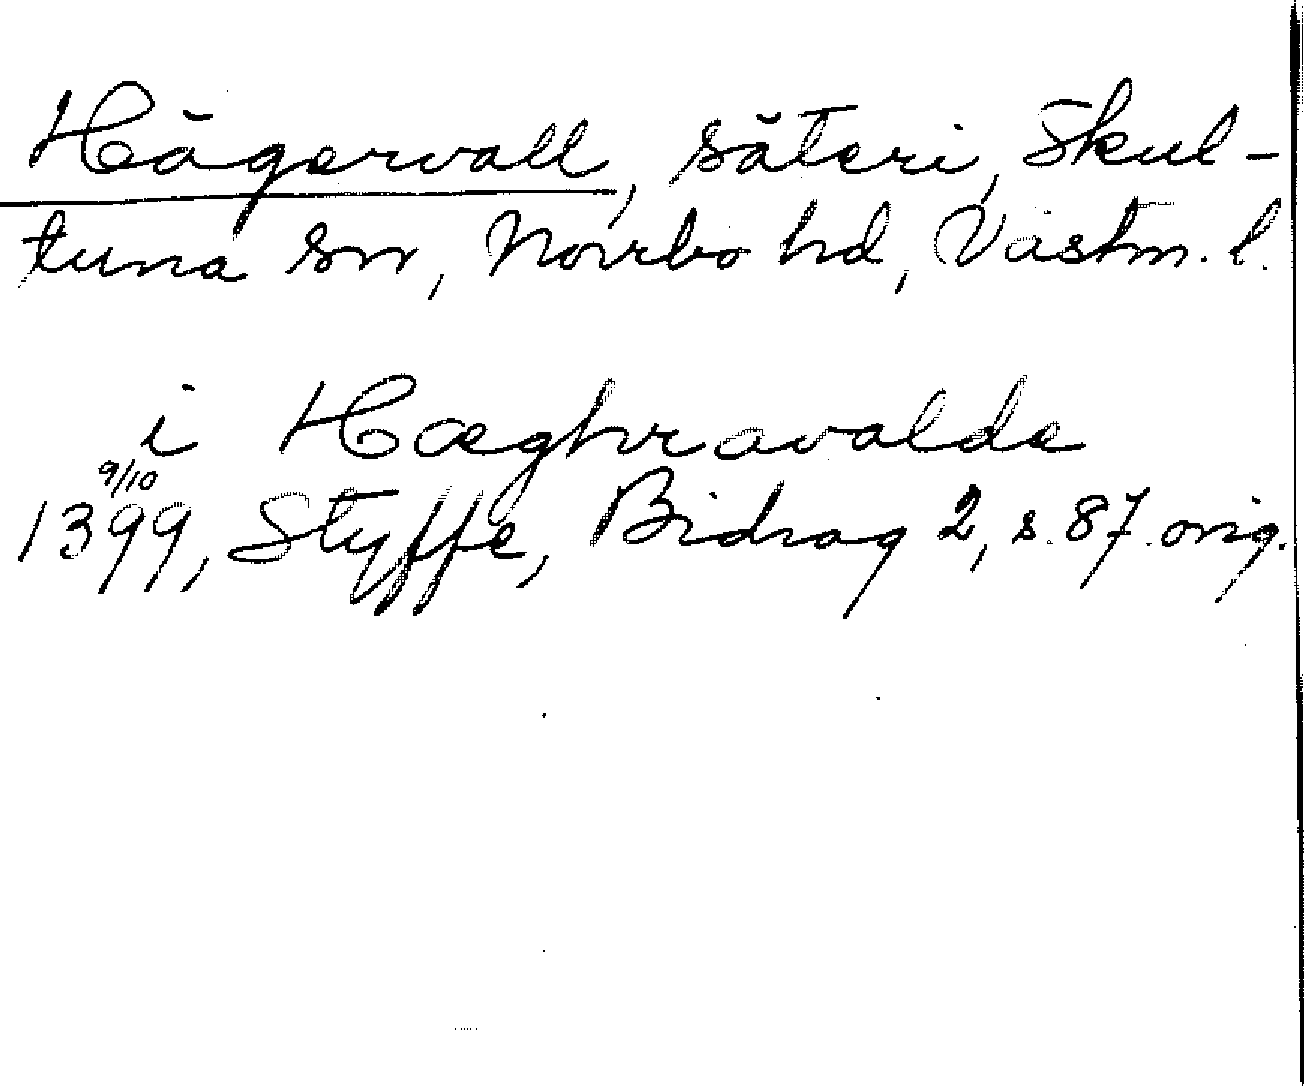 Hägervall, säteri, Skul-
tuna sn, Norrbo hd, Västm. l.
i Hæghravalda
9/10
1399, Styffe, Bidrag 2, s. 87. orig.